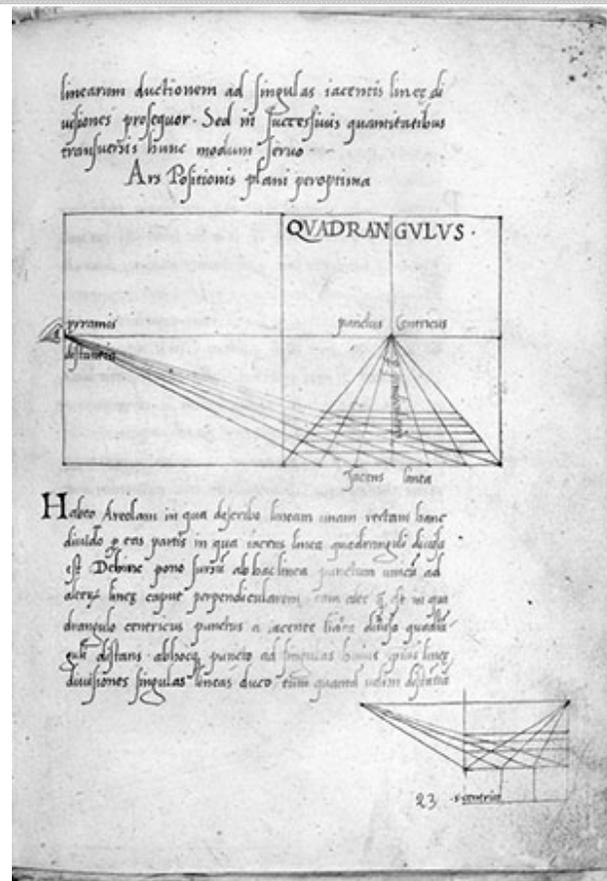 linearum ductionem ad singulas iacentis lineę di
uisiones prosequor. Sed in successiuis quantitatibus
transuersis hunc modum seruo
Ars Positionis plani peroptima
QVADRANGVLVS.
pyramis
punctus centricus
distantia
Jacens linea
Habeo Areolam in qua describo lineam unam rectam hanc
diuido eas partis in qua iacens linea quadranguli diuisa
est Dehinc pono sursum ab hac linea punctum unicu ad
lineę caput perpendicularem in qua
drangulo centricus punctus a iacente diuisa quadra
distans ab puncto ad singulas huius lineę
diuisiones singulas lineas duco tum uelim distatia
23 centric